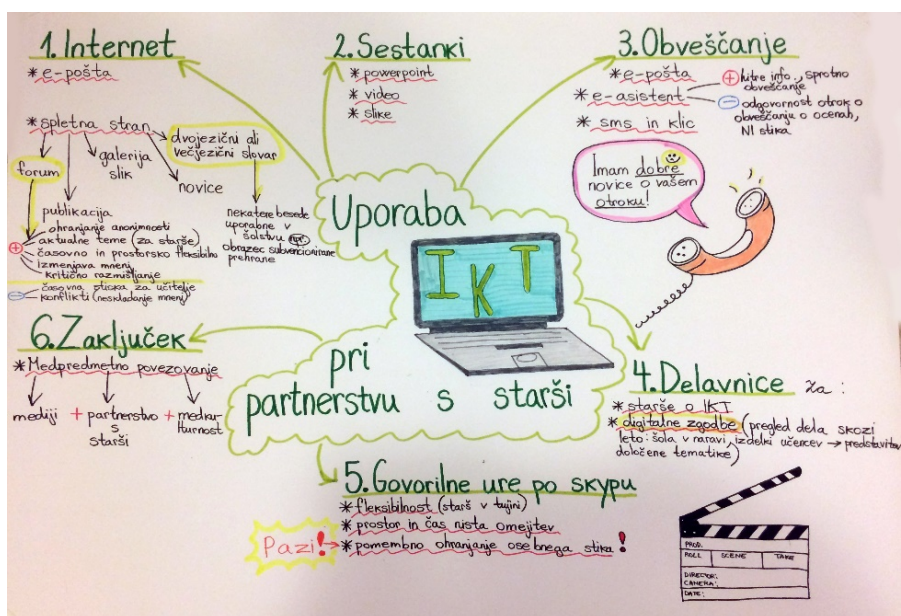 1. Internet
* e-pošta
* spletna stran
forum
publikacija
galerija
slik
novice
dvojezični ali
večjezični slovar
nekatere besede
uporabne v
šolstvu npr.
obrazec subvencionirane
prehrane
ohranjanje anonimnosti
+ aktualne teme (za starše)
časovno in prostorsko fleksibilno
izmenjava mnenj
kritično razmišljanje
- časovna stiska za učitelje
konflikti (neskladanje mnenj)
2. Sestanki
* powerpoint
* video
* slike
3. Obveščanje
* e-pošta
* e-asistent
+ hitre info., sprotno
obveščanje
- odgovornost otrok o
obveščanju o ocenah,
NI stika
* sms in klic
Imam dobre
novice o vašem
otroku!
Uporaba
IKT
pri
partnerstvu s starši
4. Delavnice za:
* starše o IKT
* digitalne zgodbe (pregled dela skozi
leto: šola v naravi, izdelki učencev → predstavitev
določene tematike)
5. Govorilne ure po skypu
* fleksibilnost (starš v tujini)
* prostor in čas nista omejitev
Pazi! → * pomembno ohranjanje osebnega stika!
6. Zaključek
* Medpredmetno povezovanje
mediji + partnerstvo + medkul-
s turnost
starši
PROD.
ROLL SCENE TAKE
DIRECTOR:
CAMERA:
DATE: